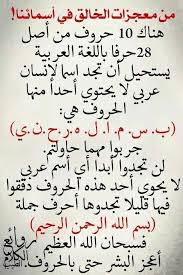 من معجزات الخالق في أسمائنا!
هناك 10 حروف من أصل
28حرفا باللغة العربية
يستحيل أن تجد اسما لإنسان
عربي لا يحتوي أحدا منها
الحروف هي:
(ب.س.م.ا.ل.ه.ر.ح.ن.ي)
جربوا مهما حاولتم.
لن تجدوا أبدا أي أسم عربي
لا يحوي أحد هذه الحروف دققوا
فيها قليلا تجدوها أحرف جملة
(بسم الله الرحمن الرحيم)
فسبحان الله العظيم
أعجز البشر حتى بالحروف.
روائع
الكلام
الطيب